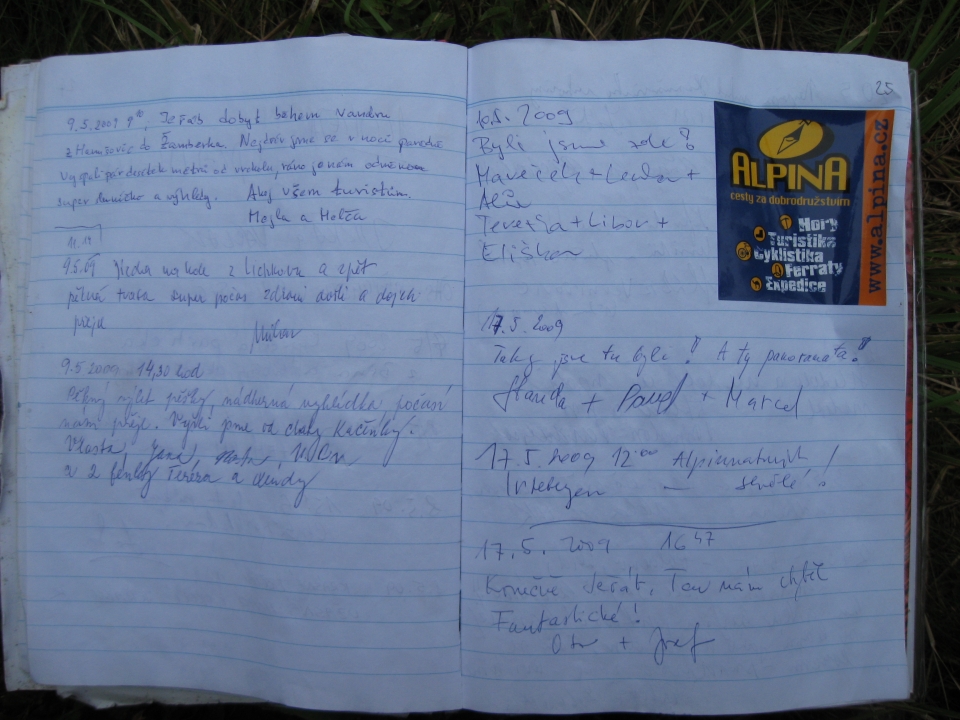 9.5.2009 9⁰⁰, Jeřáb dobyt během vandru
z Hanušovic do Žamberka. Nejdřív jsme se v noci parádně
vyspali pár desítek metrů od vrcholu, ráno je nám odměnou
super sluníčko a výhledy. Ahoj všem turistům.
Mejla a Helča
9.5.09 z Lichkova a zpět
pěkná trasa super počas
přeje
9.5 2009 14,30 hod
Pěkný výlet pěšky, nádherná vyhlídka, počasí
nám přeje. Vyšli jsme od chaty Kačenky.
Vlasta, Jana,
a 2 fenky Terera a
25
10.5. 2009
Byli jsme zde!
Havěček + Lenka +
Terezka + Libor +
Eliška
ALPINA
cesty za dobrodružstvím
Hory
Turistika
Cyklistika
Ferraty
Expedice
www.alpina.cz
17.5.2009
Taky jsme tu byli! A ty panoramata!
Standa + Pavel + Marcel
17.5.2009 12:00
17.5. 2009 16 47
Konečně Jeřáb, Ten nám chyběl
Fantastické!
Ota + Josef